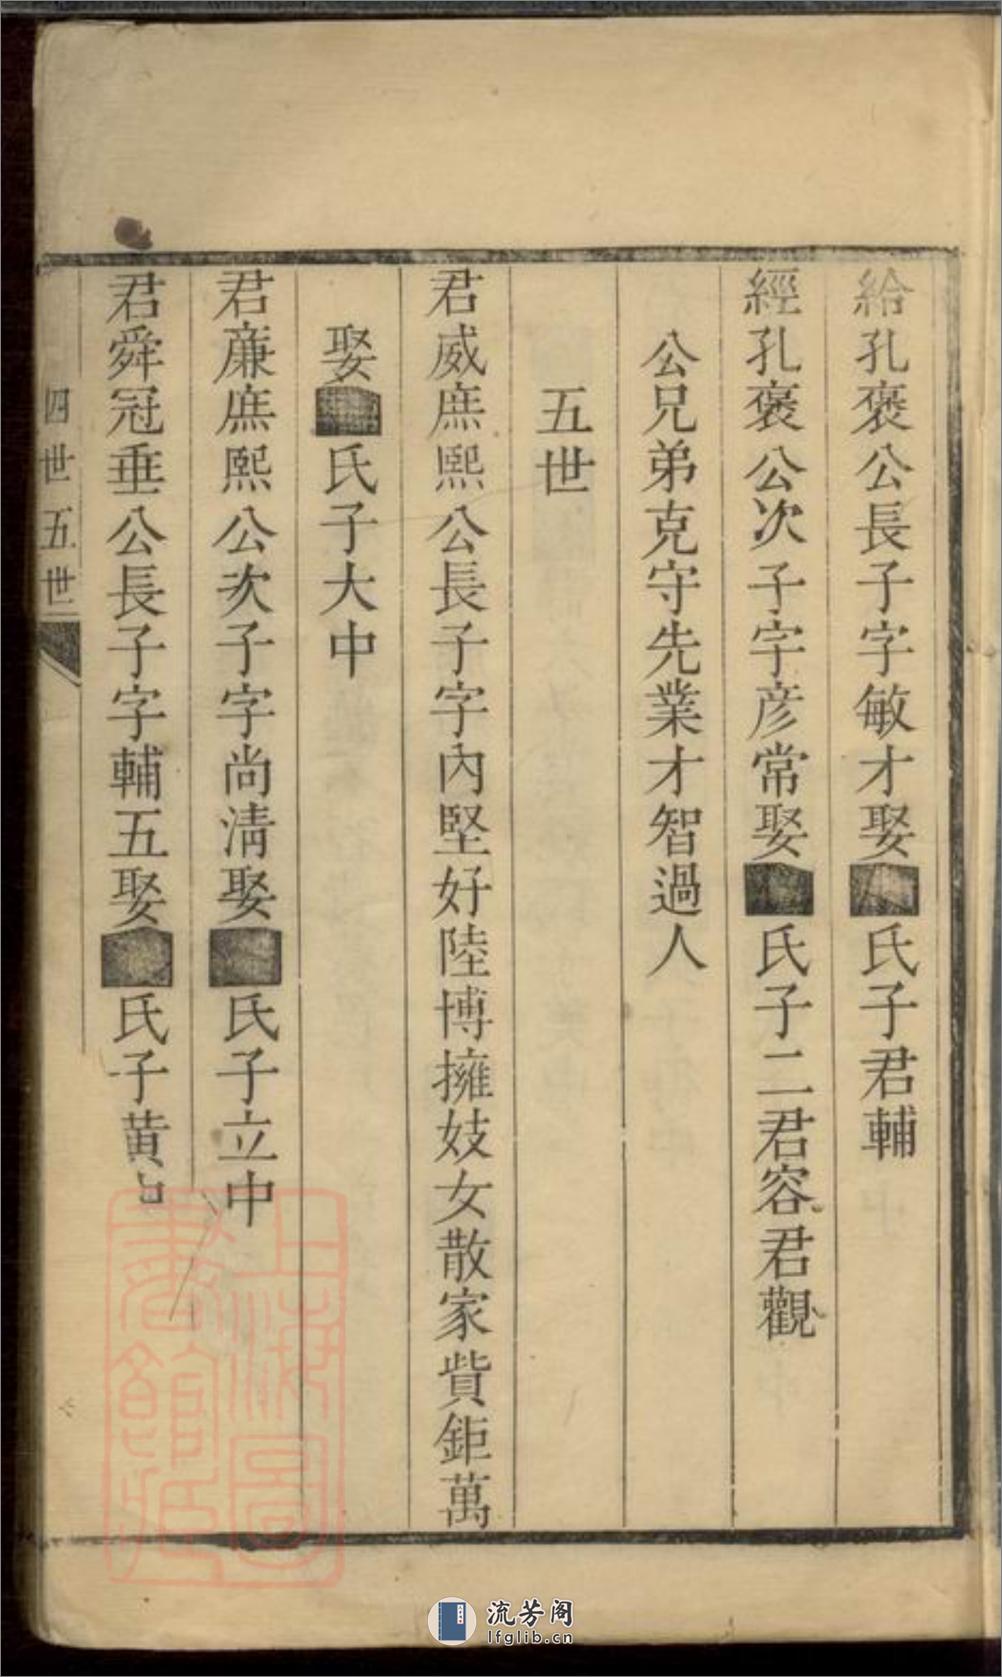 給孔褒公長子字敏才娶■氏子君輔
經孔褒公次子字彦常娶■氏子二君容君觀
公兄弟克守先業才智過人
五世
君威庶熙公長子字內堅好陸博擁妓女散家貲鉅萬
娶■氏子大中
君廉庶熙公次子字尚淸娶■氏子立中
君舜冠垂公長子字輔五娶■氏子黄中
四世五世
上海圖書館藏
流芳阁
lfglib.cn